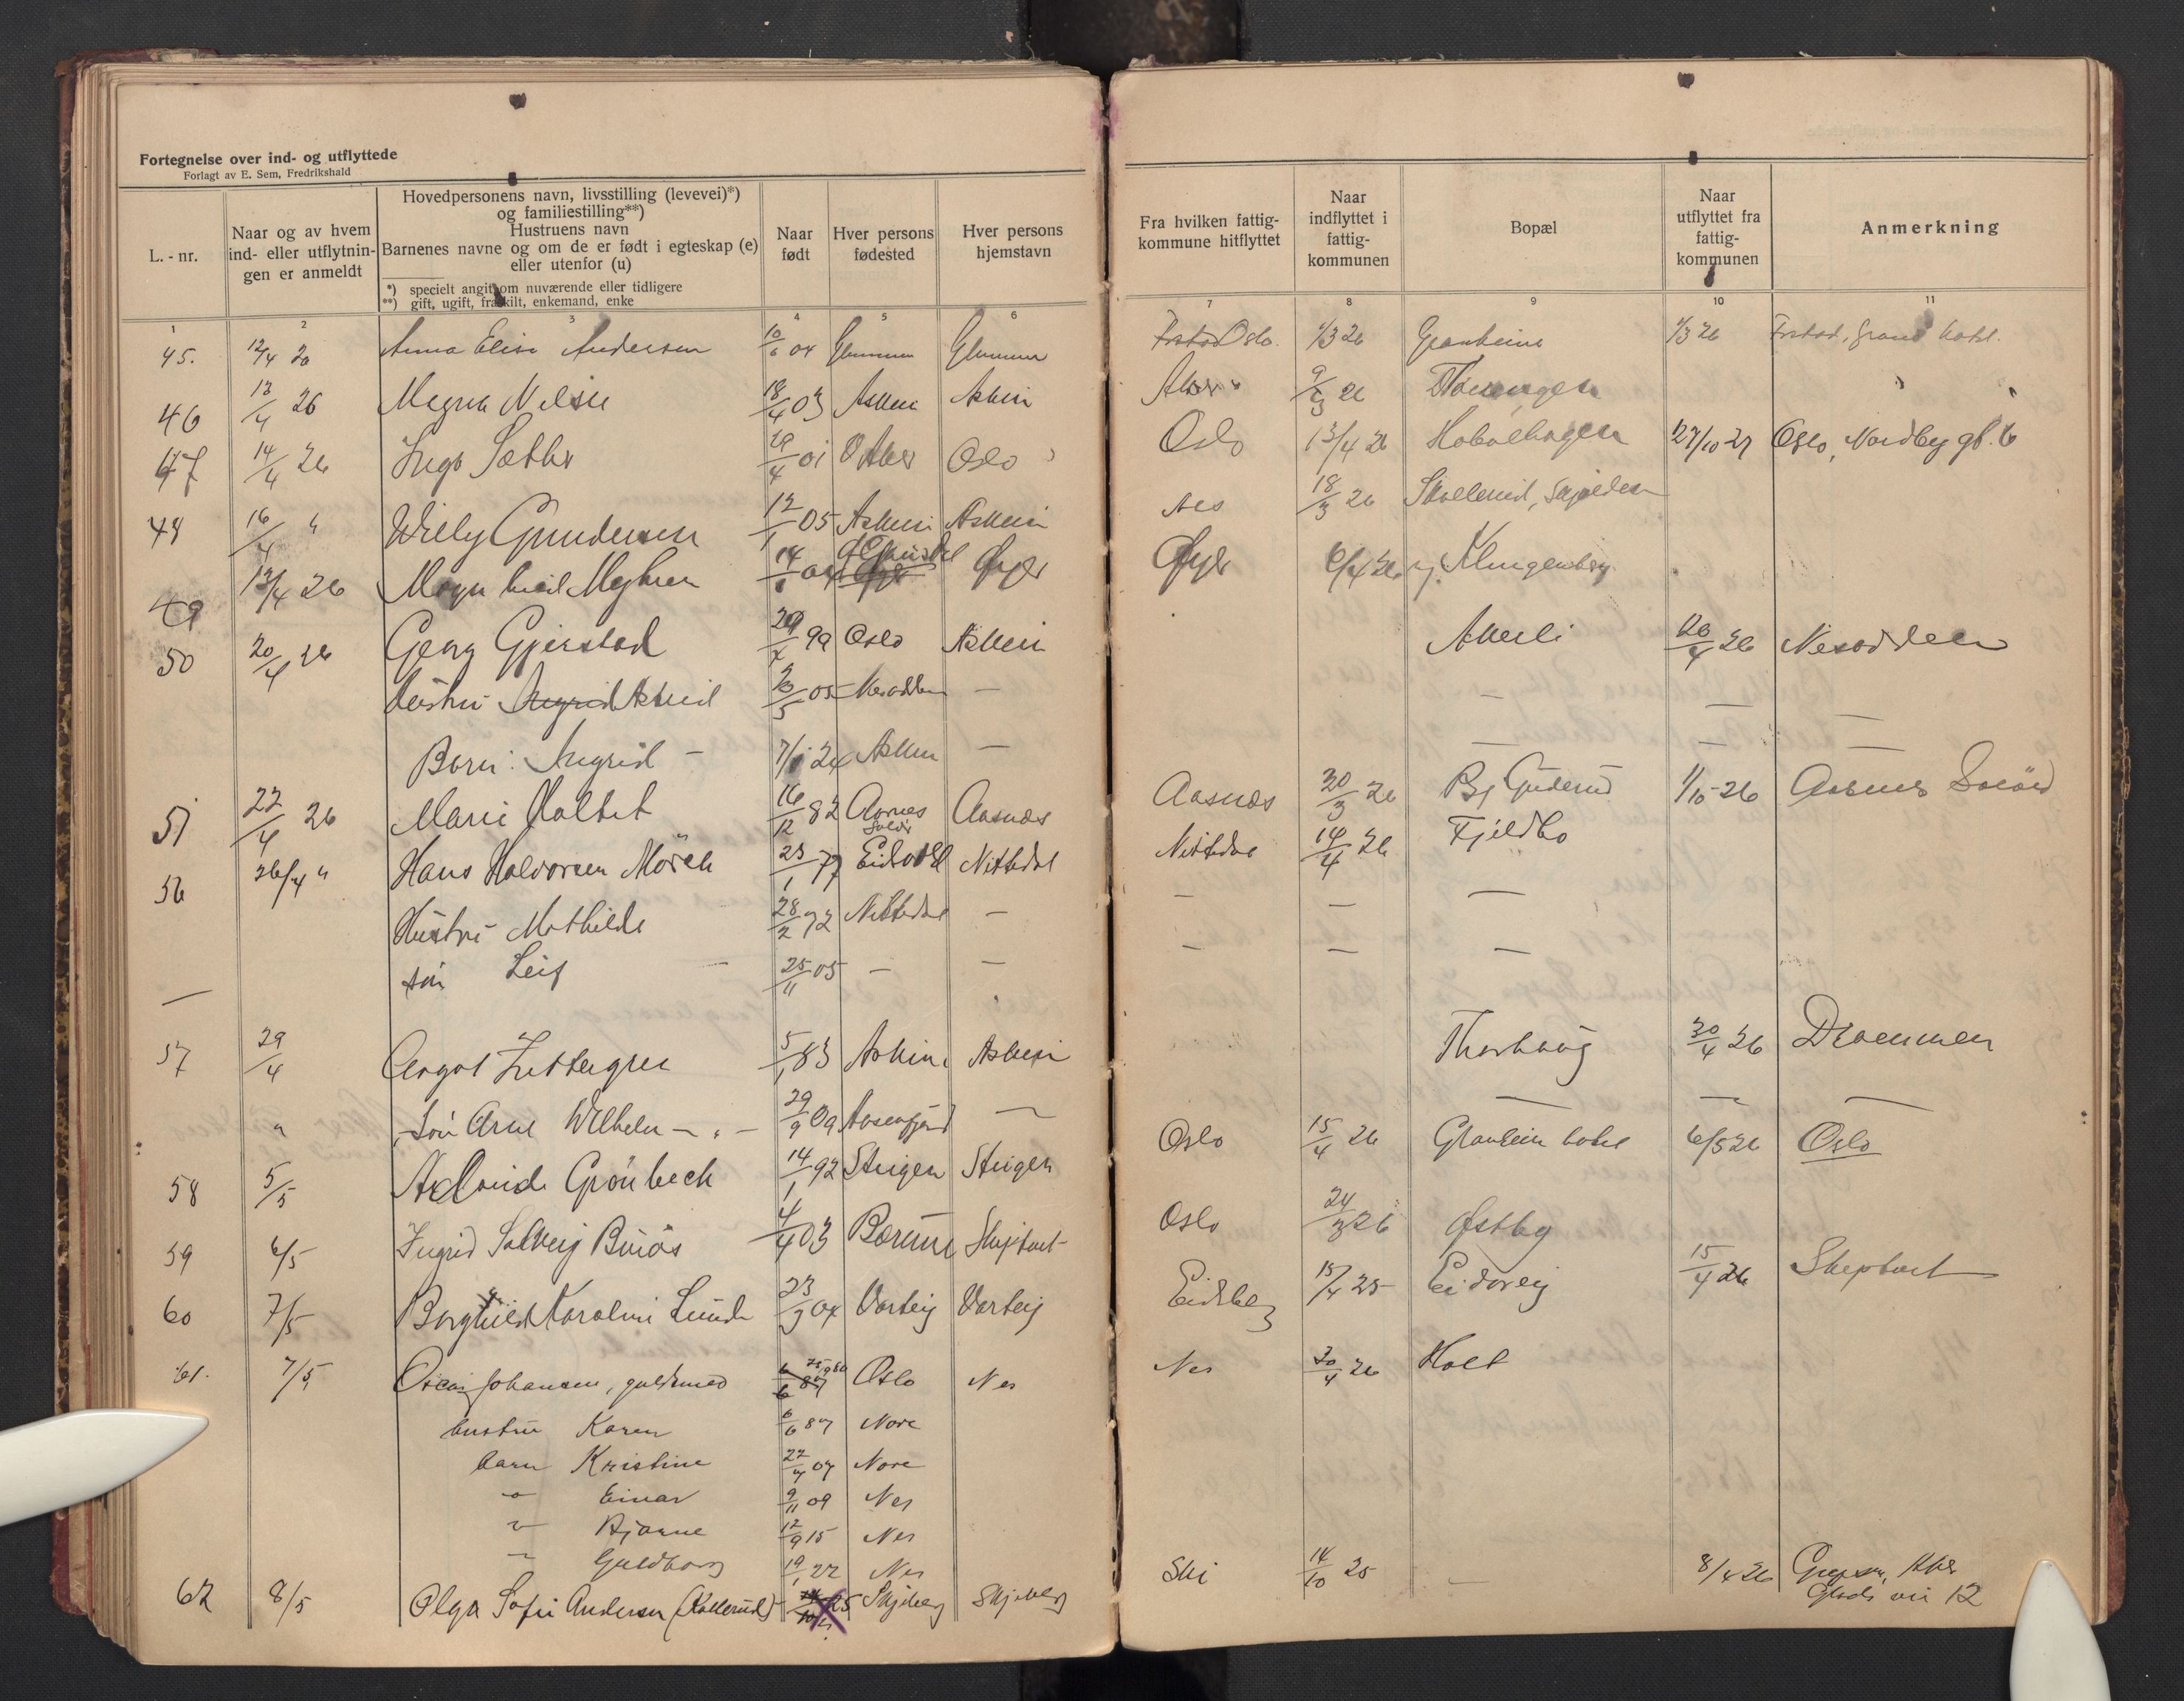 Fortegnelse over ind- og utflyttede
Forlagt av E. Sem, Fredrikshald
L. - nr.
Naar og av hvem ind- eller utflytnin- gen er anmeldt
Hovedpersonens navn, livsstilling (levevei)*)
og familiestilling**)
Hustruens navn
Barnenes navne og om de er født i egteskap (e)
eller utenfor (u)
*) specielt angit om nuværende eller tidligere
**) gift, ugift, fraskilt, enkemand, enke
Naar født
Hver persons fødested
Hver persons hjemstavn
Fra hvilken fattig- kommune hitflyttet
Naar indflyttet i fattig- kommunen
Bopæl
Naar utflyttet fra fattig- kommunen
Anmerkning
1 2 3 4 5 6 7 8 9 10 11
45. 12/4 26 Anna Elise Andersen 10/6 04 Glemmen Glemmen Oslo. 1/3 26 Granheim 1/3 26 Frstad, Grand hotel.
46 13/4 26 Magna Nelsie 18/4 03 Askim Askim Aker 9/3 26
47 14/4 26 Inga Sæther 4 01 Aker Oslo Oslo 13/4 26 Haboelhagen 27/10 27 Oslo, Nordby gt. 6
48 16/4 " Willy Gundersen 12/1 05 Askim Askim Aas 18/3 26 Skjolden
49 13/4 26 Myhren 14/ Øyer Øyer 26 Klingenberg
50 20/4 26 Georg Gjerstad 99 Oslo Askim Akerli 20/4 26 Nesodden
Hustru Ingrid Astrid 5 05 Nesodden — — — —
Barn: Ingrid — 7/1 24 Askim — — — —
51 22/4 26 Marie Holtet 16/12 82 Aasnes Solør Aasnæs Aasnæs 30/3 26 Bj Guderud 1/10 26 Aasnes Solør
56 26/4 " Hans Halvorsen Mörch 23/1 77 Eidsvold Nittedal Nittedal 14/4 26 Fjeldbo
Hustru Mathilde 28/2 72 Nittedal — — — —
sön Leif — 25/11 05 — — — — —
—
57 29/4 Aagot Zettergren 5/1 83 Askim Askim Thorhaug 30/4 26 Drammen
" Sön Arne Wilhelm — " — 29/9 09 Aasenfjord — — — —
58 5/5 Grönbech 14/1 92 Steigen Steigen Oslo 15/4 26 Granheim hotel 6/5 26 Oslo
59 6/5 Ingrid Solveig Buiås 4/4 03 Bærum Skiptvet Oslo 24/3 26 Østby
60 7/5 Borghild Karoline Lunde 23/9 04 Varteig Varteig Eidsberg 15/4 25 Eidsveig 15/4 26 Skiptvet
61. 7/5 Oscar Johansen, guldsmed 6/6 87 Oslo Nes Nes 20/4 26 Holt
hustru Karen 6/6 87 Nore
barn Kristine 27/4 07 Nore
" Einar 9/11 09 Nes
" Bjarne 12/9 15 Nes
" Guldborg 19/1 22 Nes
62 8/5 Olga Sofie Andersen (Kallerud) 25 Skjeberg Skjeberg Ski 14/10 25 — 8/4 26 Grefsen, Aker
Glads vei 12